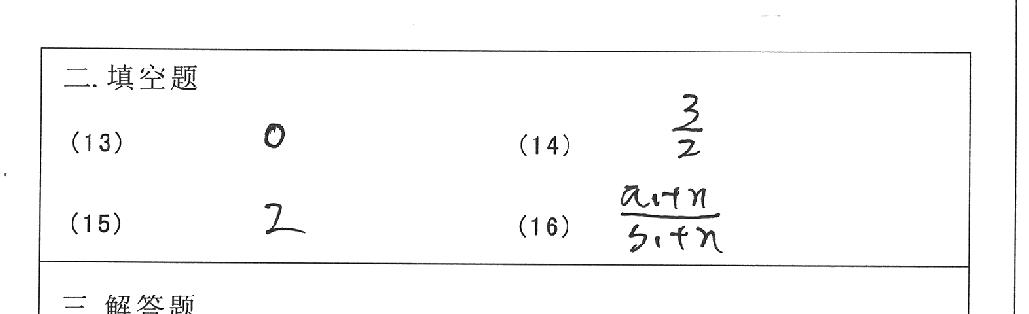 二.填空题
(13) 0 (14) 3/2
(15) 2 (16) a₁+n/s₁+n
三 解答题